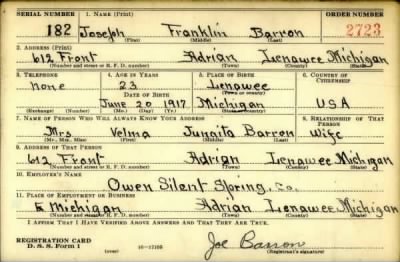 SERIAL NUMBER 1. NAME (Print) ORDER NUMBER
182 Joseph Franklin Barron 2723
(First) (Middle) (Last)
2. ADDRESS (Print)
612 Front Adrian Lenawee Michigan
(Number and street or R. F. D. number) (Town) (County) (State)
3. TELEPHONE 4. AGE IN YEARS 5. PLACE OF BIRTH 6. COUNTRY OF CITIZENSHIP
none 23 Lenawee
DATE OF BIRTH (Town or county)
June 20 1917 Michigan USA
(Exchange) (Number) (Mo.) (Day) (Yr.) (State or country)
7. NAME OF PERSON WHO WILL ALWAYS KNOW YOUR ADDRESS 8. RELATIONSHIP OF THAT PERSON
Mrs Velma Junaita Barron Wife
(Mr., Mrs., Miss) (First) (Middle) (Last)
9. ADDRESS OF THAT PERSON
612 Front Adrian Lenawee Michigan
(Number and street or R. F. D. number) (Town) (County) (State)
10. EMPLOYER'S NAME
Owen Silent Spring, Co.
11. PLACE OF EMPLOYMENT OR BUSINESS
E Michigan Adrian Lenawee Michigan
(Number and street or R. F. D. number) (Town) (County) (State)
I AFFIRM THAT I HAVE VERIFIED ABOVE ANSWERS AND THAT THEY ARE TRUE.
REGISTRATION CARD
D. S. S. Form 1 (over) 16-17105 Joe Barron
(Registrant's signature)